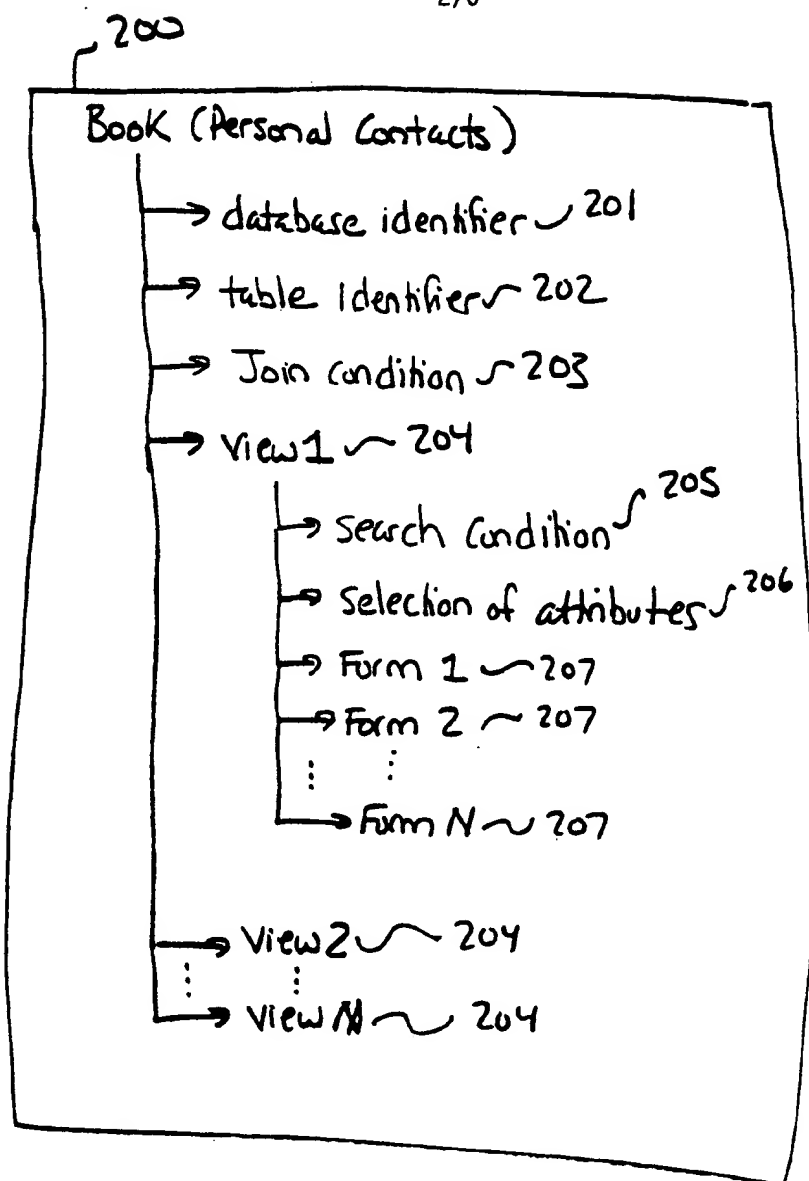 200
Book (Personal Contacts)
database identifier 201
table Identifier 202
Join condition 203
View 1 204
Search Condition 205
Selection of attributes 206
Form 1 207
Form 2 207
Form N 207
View 2 204
View N 204